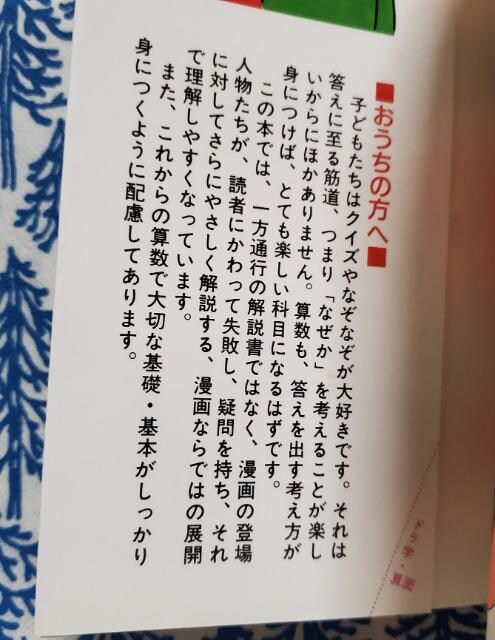 ■おうちの方へ■
子どもたちはクイズやなぞなぞが大好きです。それは
答えに至る筋道、つまり「なぜか」を考えることが楽し
いからにほかありません。算数も、答えを出す考え方が
身につけば、とても楽しい科目になるはずです。
この本では、一方通行の解説書ではなく、漫画の登場
人物たちが、読者にかわって失敗し、疑問を持ち、それ
に対してさらにやさしく解説する、漫画ならではの展開
で理解しやすくなっています。
また、これからの算数で大切な基礎・基本がしっかり
身につくように配慮してあります。
ドラ
学・算